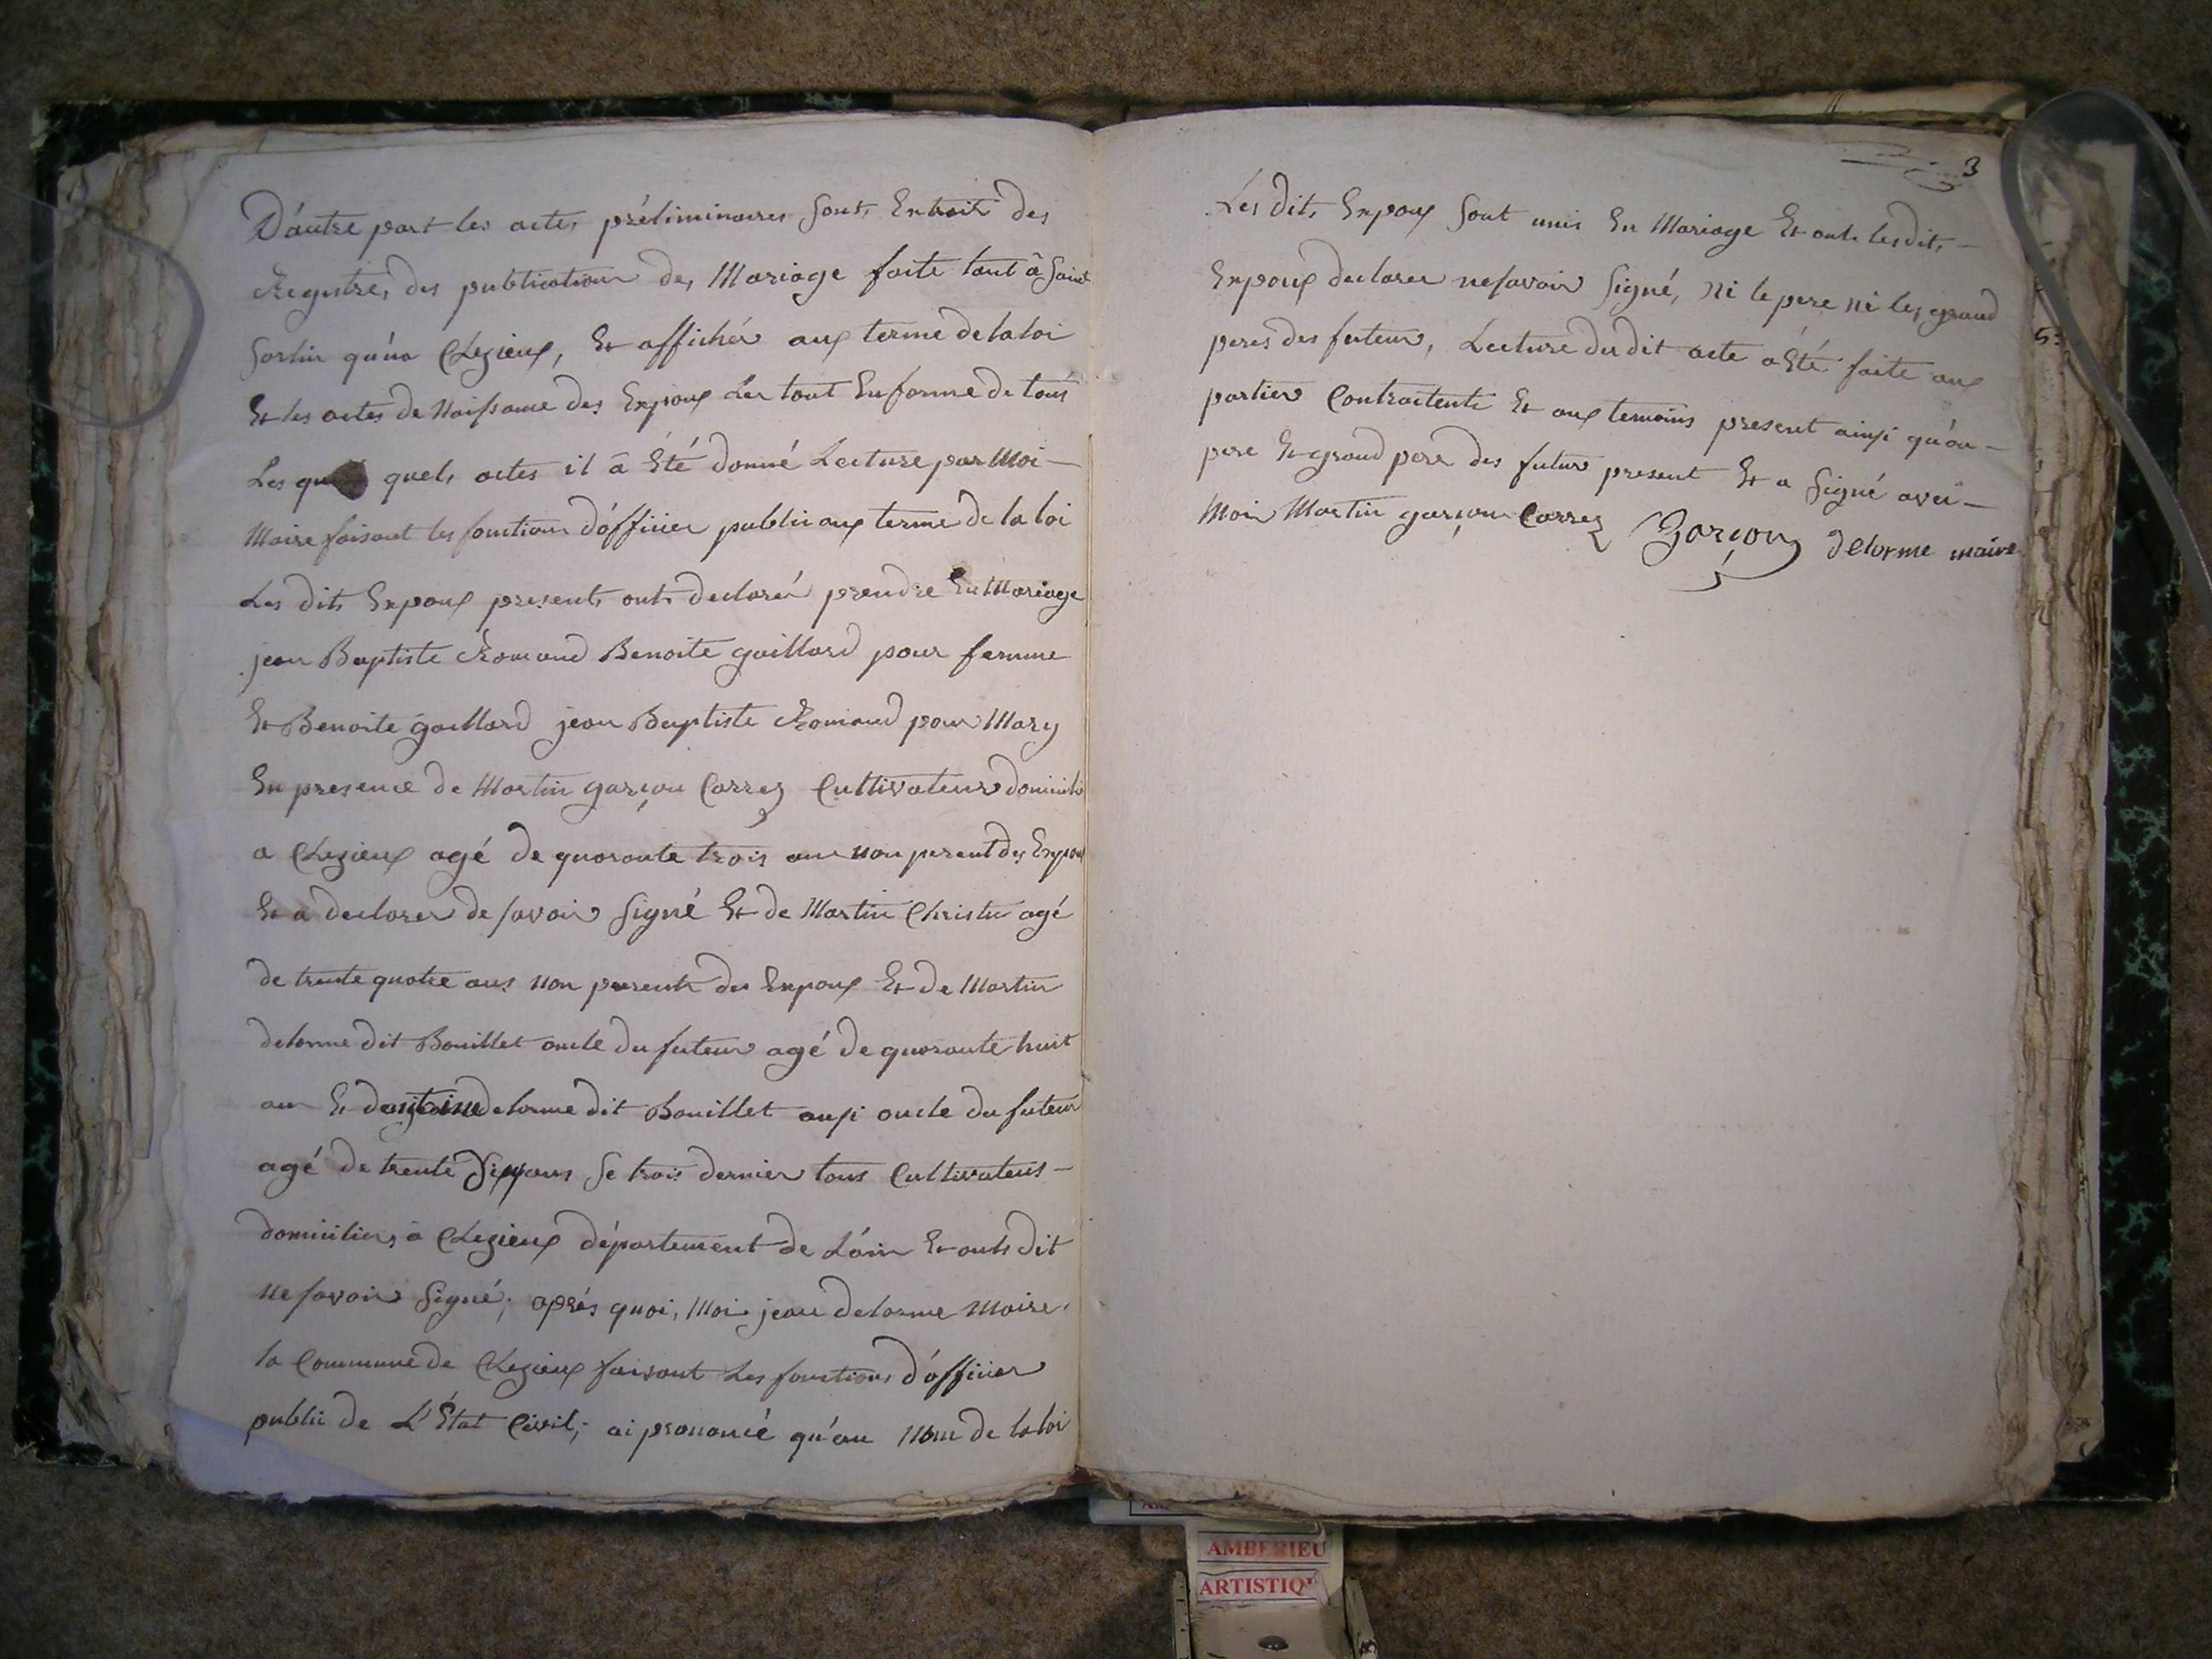 D'autre part les actes préliminaires sont Extrait des
Registres des publication de Mariage faite tant â Saint
Sorlin qu'ua Chezieux, Et affichér aux terme de la loi
Et les actes de Naissance des Expoux Le tout En forme de tous
Les quels actes il â Été donné Lecture par Moi -
Maire faisant les fonction d'officier public aux terme de la loi
Les dits Expoux presents onts declaré prendre En Mariage
jean Baptiste Romand Benoite gaillard pour femme
Et Benoite gaillard jean Baptiste Romand pour Mary
En presence de Martin garçon Carrez Cultivateur domicilié
a Chezieux agé de quarante trois ans non parent des Expoux
Et a declarer de savoir Signé Et de Martin Christin agé
de trente quatre ans non parents des Expoux Et de Martin
delorme dit Bouillet oncle du futeur agé de quarante huit
ans Et dantoine delorme dit Bouillet aussi oncle du futeur
agé de trente Six ans Se trois dernier tous Cultivateurs -
domiciliers à Chezieux département de L'ain Et onts dit
ne savoir Signé; aprés quoi, Moi jean delorme Maire
la Commune de Chezieux faisant Les fonctions d'officier
public de L'État Civil; ai prononcé qu'au Nom de la loi
3
Les dits Expoux Sont unis En Mariage Et onts les dits -
Expoux declarer ne savoir Signé, Ni le pere ni les grand
peres des futeur, Lecture du dit acte a Été faite aux
parties Contractente Et aux temoins present ainsi qu'au -
pere Et grand pere des futur present Et a Signé avec -
Moi Martin garçon Carrez Garçon delorme maire
5
AMBERIEU
ARTISTIQ